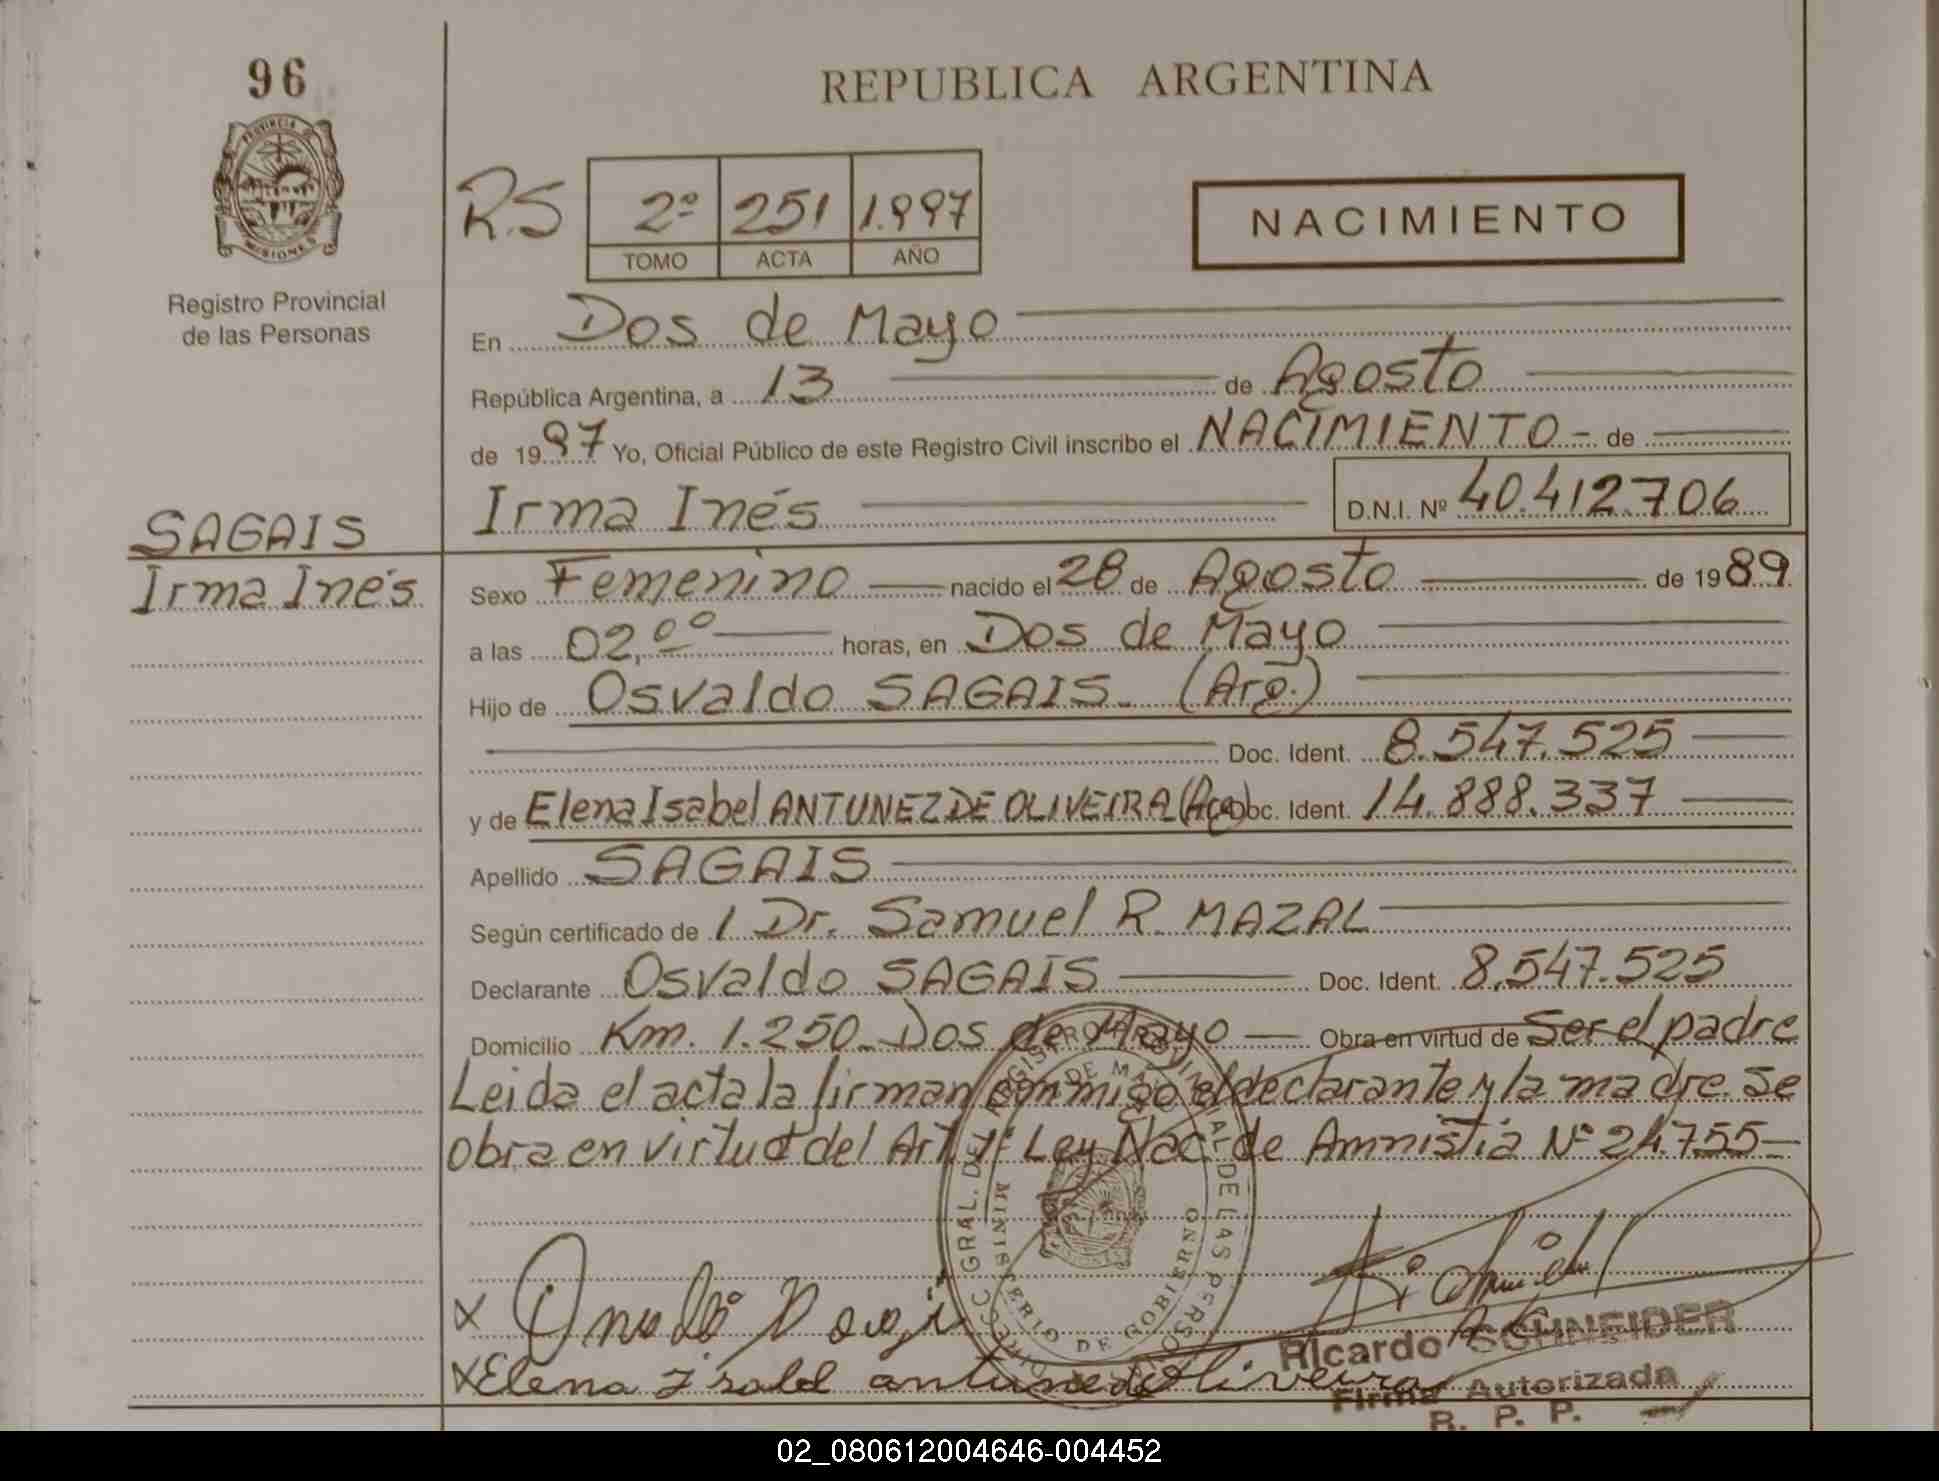 96
REPUBLICA ARGENTINA
PROVINCIA DE
MISIONES
Registro Provincial
de las Personas
R.S 2º 251 1.997
TOMO ACTA AÑO
NACIMIENTO
En Dos de Mayo
República Argentina, a 13 de Agosto
de 1997 Yo, Oficial Público de este Registro Civil inscribo el NACIMIENTO - de
Irma Inés D.N.I. Nº 40.412.706
SAGAIS
Irma Inés
Sexo Femenino nacido el 28 de Agosto de 1989
a las 02,00 horas, en Dos de Mayo
Hijo de Osvaldo SAGAIS - (Arg.)
Doc. Ident. 8.547.525
y de Elena Isabel ANTUNEZ DE OLIVEIRA (Arg) Doc. Ident. 14.888.337
Apellido SAGAIS
Según certificado de 1 Dr. Samuel R. MAZAL
Declarante Osvaldo SAGAIS Doc. Ident. 8.547.525
Domicilio Km. 1.250 - Dos de Mayo Obra en virtud de Ser el padre
Leida el acta la firman conmigo el declarante y la madre. Se
obra en virtud del Art. 1º Ley Nac. de Amnistia Nº 24.755 -
MINISTERIO DE GOBIERNO
X
X Elena Isabel antunes de Oliveira
Ricardo A. SCHNEIDER
Firma Autorizada
R. P. P.
02_080612004646-004452